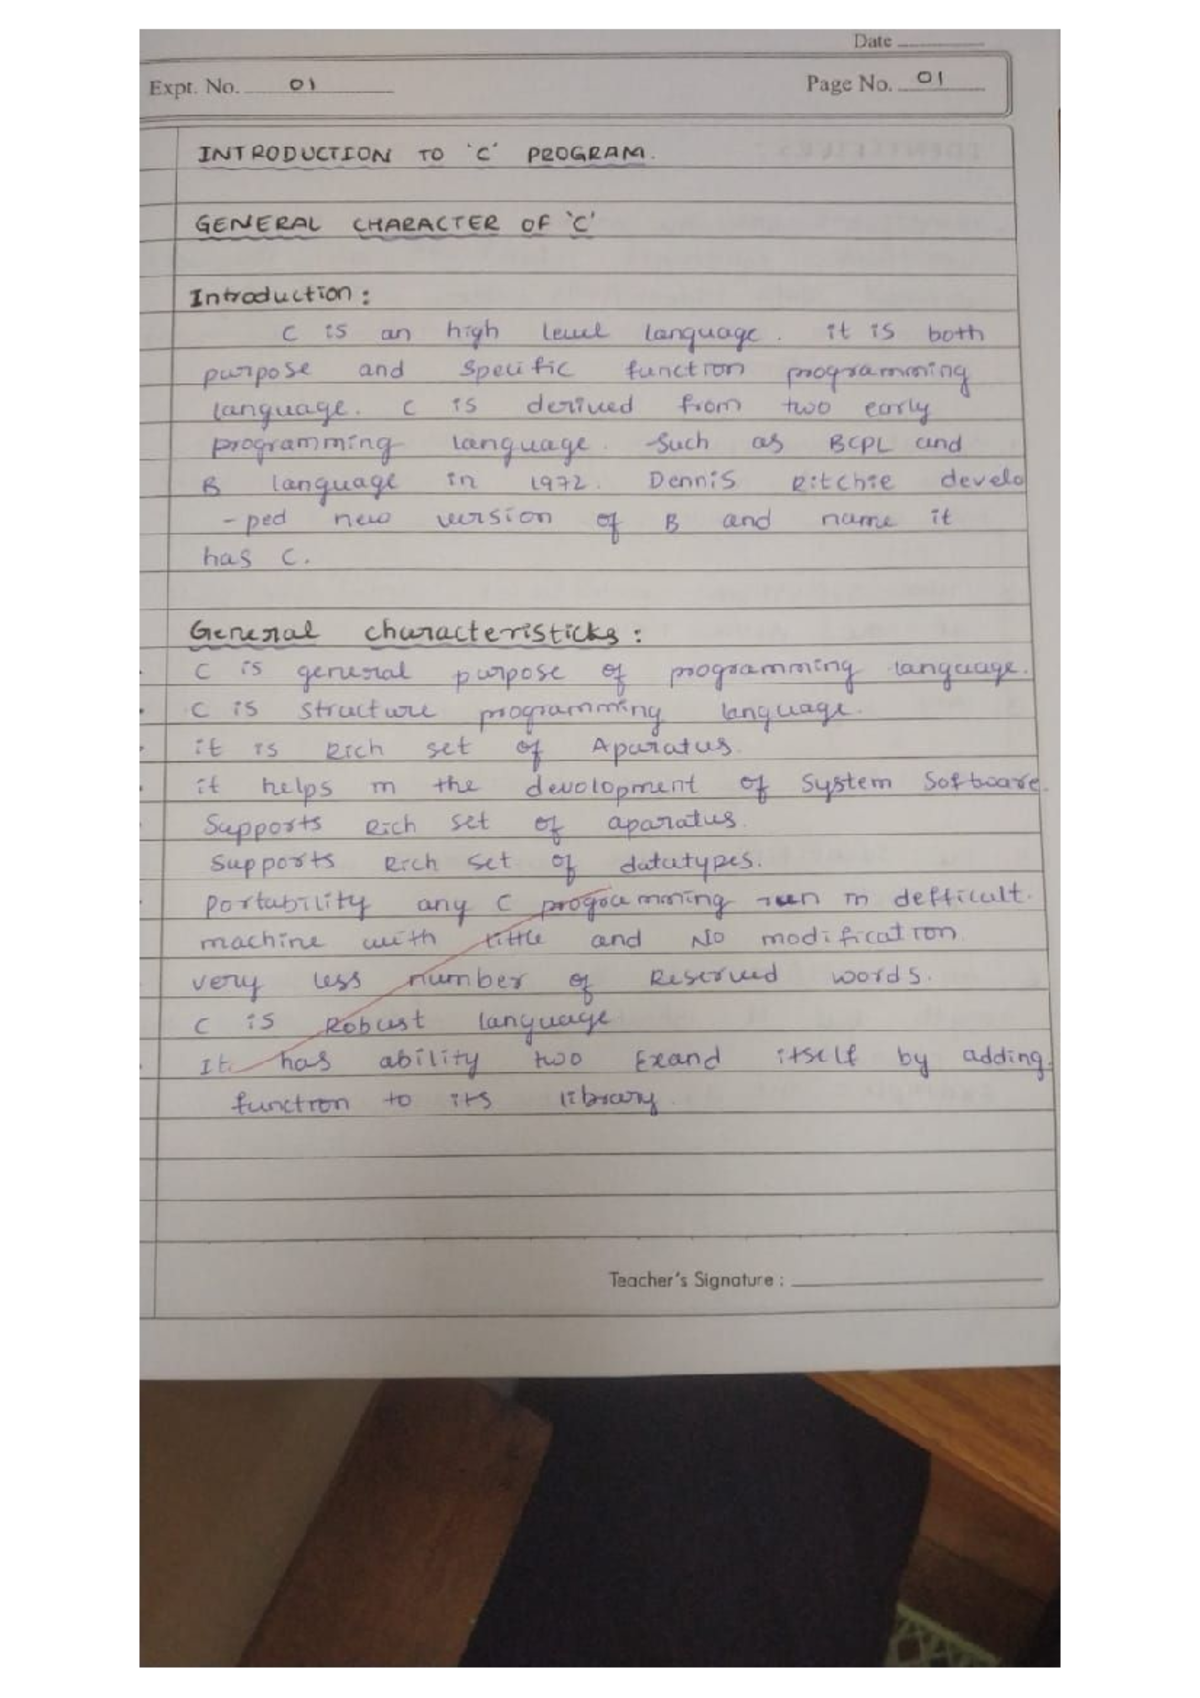 Date
Expt. No. 01
Page No. 01
INTRODUCTION TO 'C' PROGRAM.
GENERAL CHARACTER OF 'C'
Introduction :
C is an high level language. it is both
purpose and specific function programming
language. C is derived from two early
programming language. Such as BCPL and
B language in 1972. Dennis Ritchie develo
-ped new version of B and name it
has C.
General characteristicks :
C is general purpose of programming language.
C is structure programming language.
it is Rich set of Aparatus.
it helps in the devolopment of System Software.
Supports Rich set of aparatus.
Supports Rich set of datatypes.
Portability any C programming run in defficult.
machine with little and No modification
very less number of Reserved words.
C is Robust language
It has ability two Exand itself by adding.
function to its library.
Teacher's Signature :